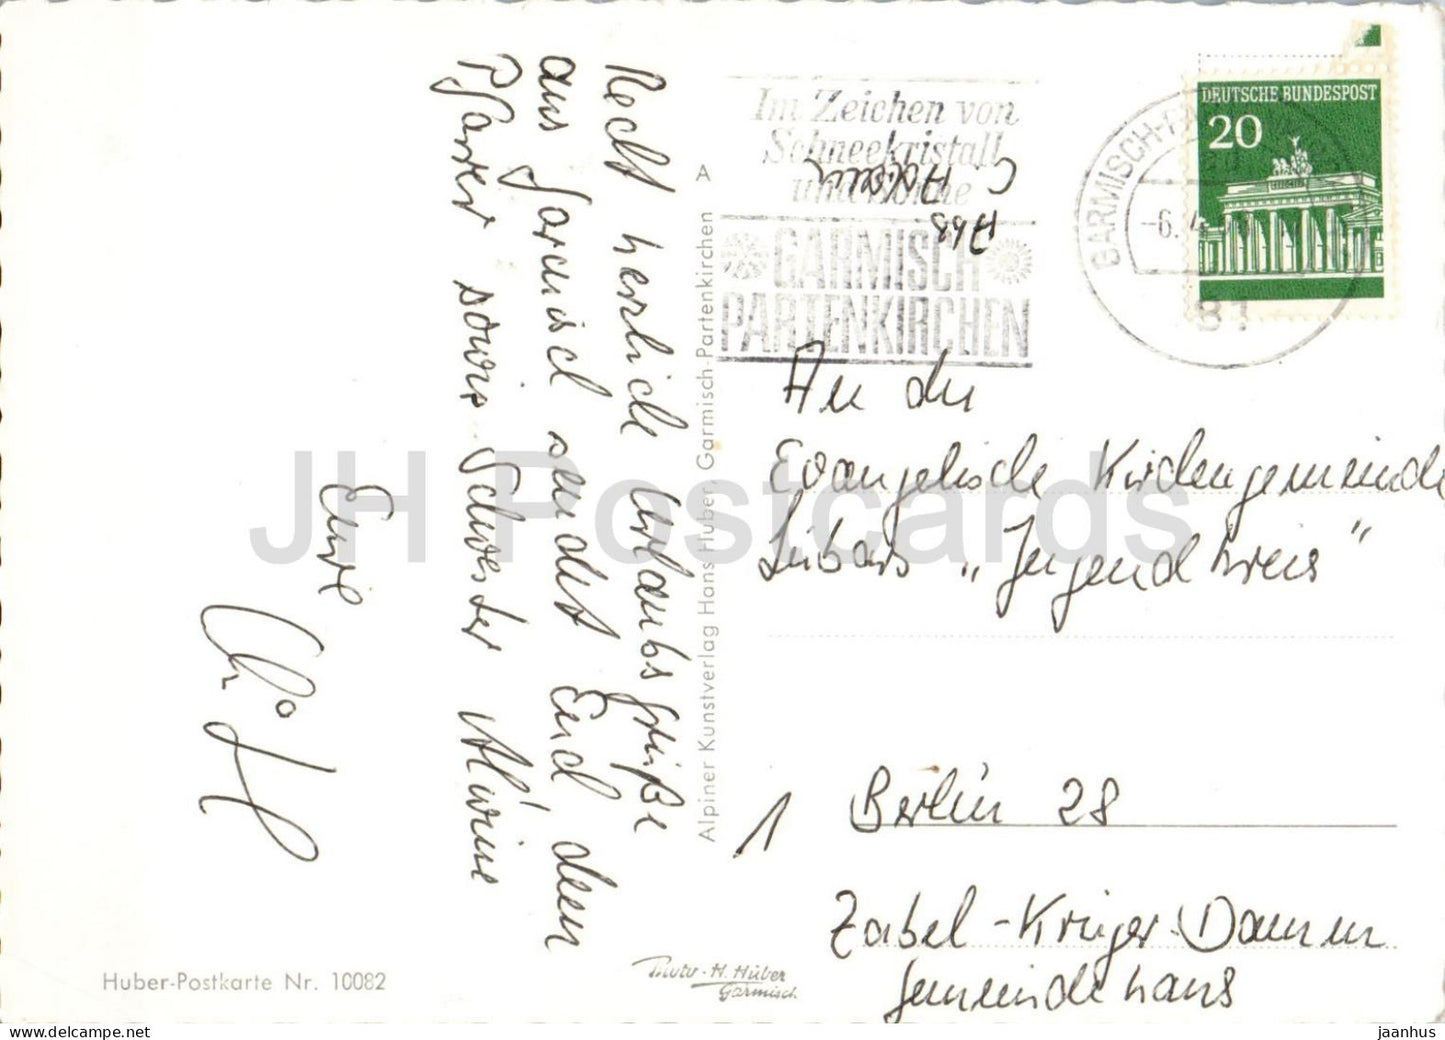 Recht herzliche Urlaubsgrüße
aus Garmisch sendet Euch, dem
Pfarrer sowie Schwester Alwine
Eure
Huber-Postkarte Nr. 10082
A
Alpiner Kunstverlag Hans Huber, Garmisch-Partenkirchen
Photo-H. Huber
Garmisch
Im Zeichen von
Schneekristall
und Sonne
GARMISCH
PARTENKIRCHEN
GARMISCH-
-6.
81
DEUTSCHE BUNDESPOST
20
Abs
An den
Evangelische Kirchengemeinde
Lübars „Jugendkreis"
1 Berlin 28
Zabel-Krüger-Damm
Gemeindehaus
JH Postcards
www.delcampe.net
jaanhus